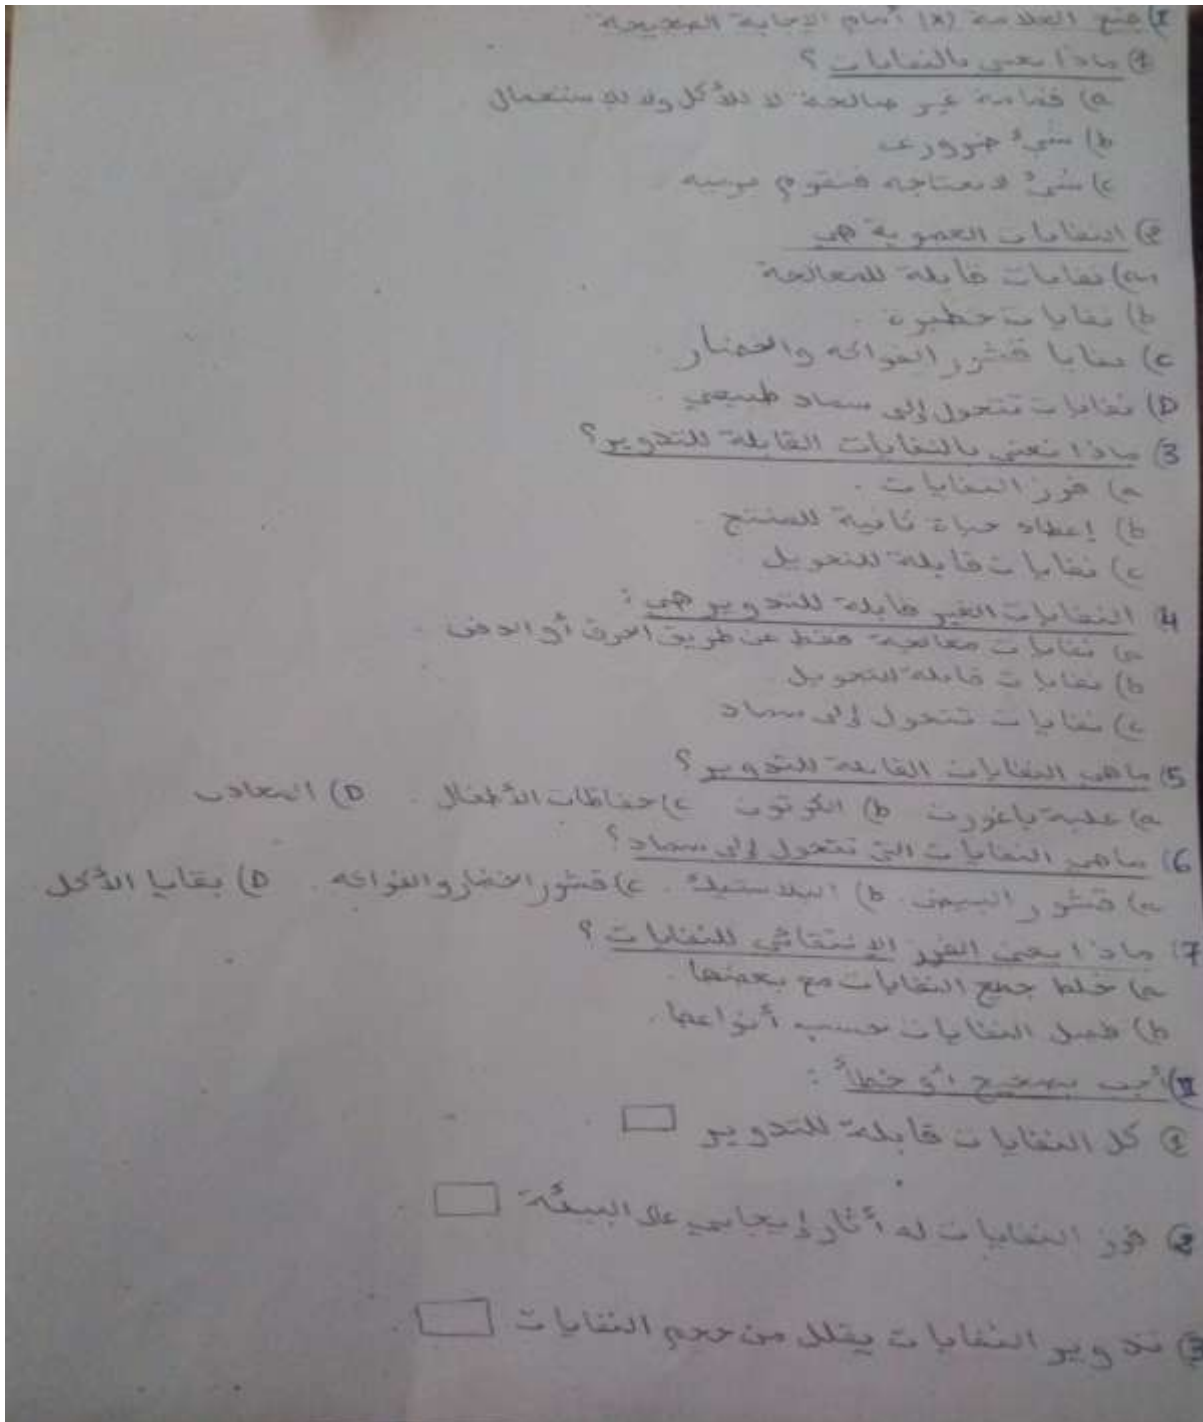 I) ضع العلامة (x) أمام الإجابة الصحيحة.
① ماذا نعني بالنفايات ؟
a) قمامة غير صالحة لا للأكل ولا للإستعمال
b) شيء ضروري
c) شيء لا نحتاجه فنقوم برميه
② النفايات العضوية هي
a) نفايات قابلة للمعالجة
b) نفايات خطيرة .
c) بقايا قشور الفواكه والخضار .
D) نفايات تتحول إلى سماد طبيعي .
3) ماذا نعني بالنفايات القابلة للتدوير ؟
a) فرز النفايات .
b) إعطاء حياة ثانية للمنتج
c) نفايات قابلة للتحويل .
4) النفايات الغير قابلة للتدوير هي :
a) نفايات معالجة فقط عن طريق الحرق أو الدفن .
b) نفايات قابلة للتحويل
c) نفايات تتحول إلى سماد
5) ماهي النفايات القابلة للتدوير ؟
a) علبة ياغورت b) الكرتون c) حفاظات الأطفال . D) المعادن
6) ماهي النفايات التي تتحول إلى سماد ؟
a) قشور البيض . b) البلاستيك . c) قشور الخضار والفواكه . D) بقايا الأكل
7) ماذا يعني الفرز الإنتقائي للنفايات ؟
a) خلط جميع النفايات مع بعضها .
b) فصل النفايات حسب أنواعها .
II) أجب بصحيح أو خطأ :
① كل النفايات قابلة للتدوير
② فرز النفايات له أثار إيجابي على البيئة .
③ تدوير النفايات يقلل من حجم النفايات .